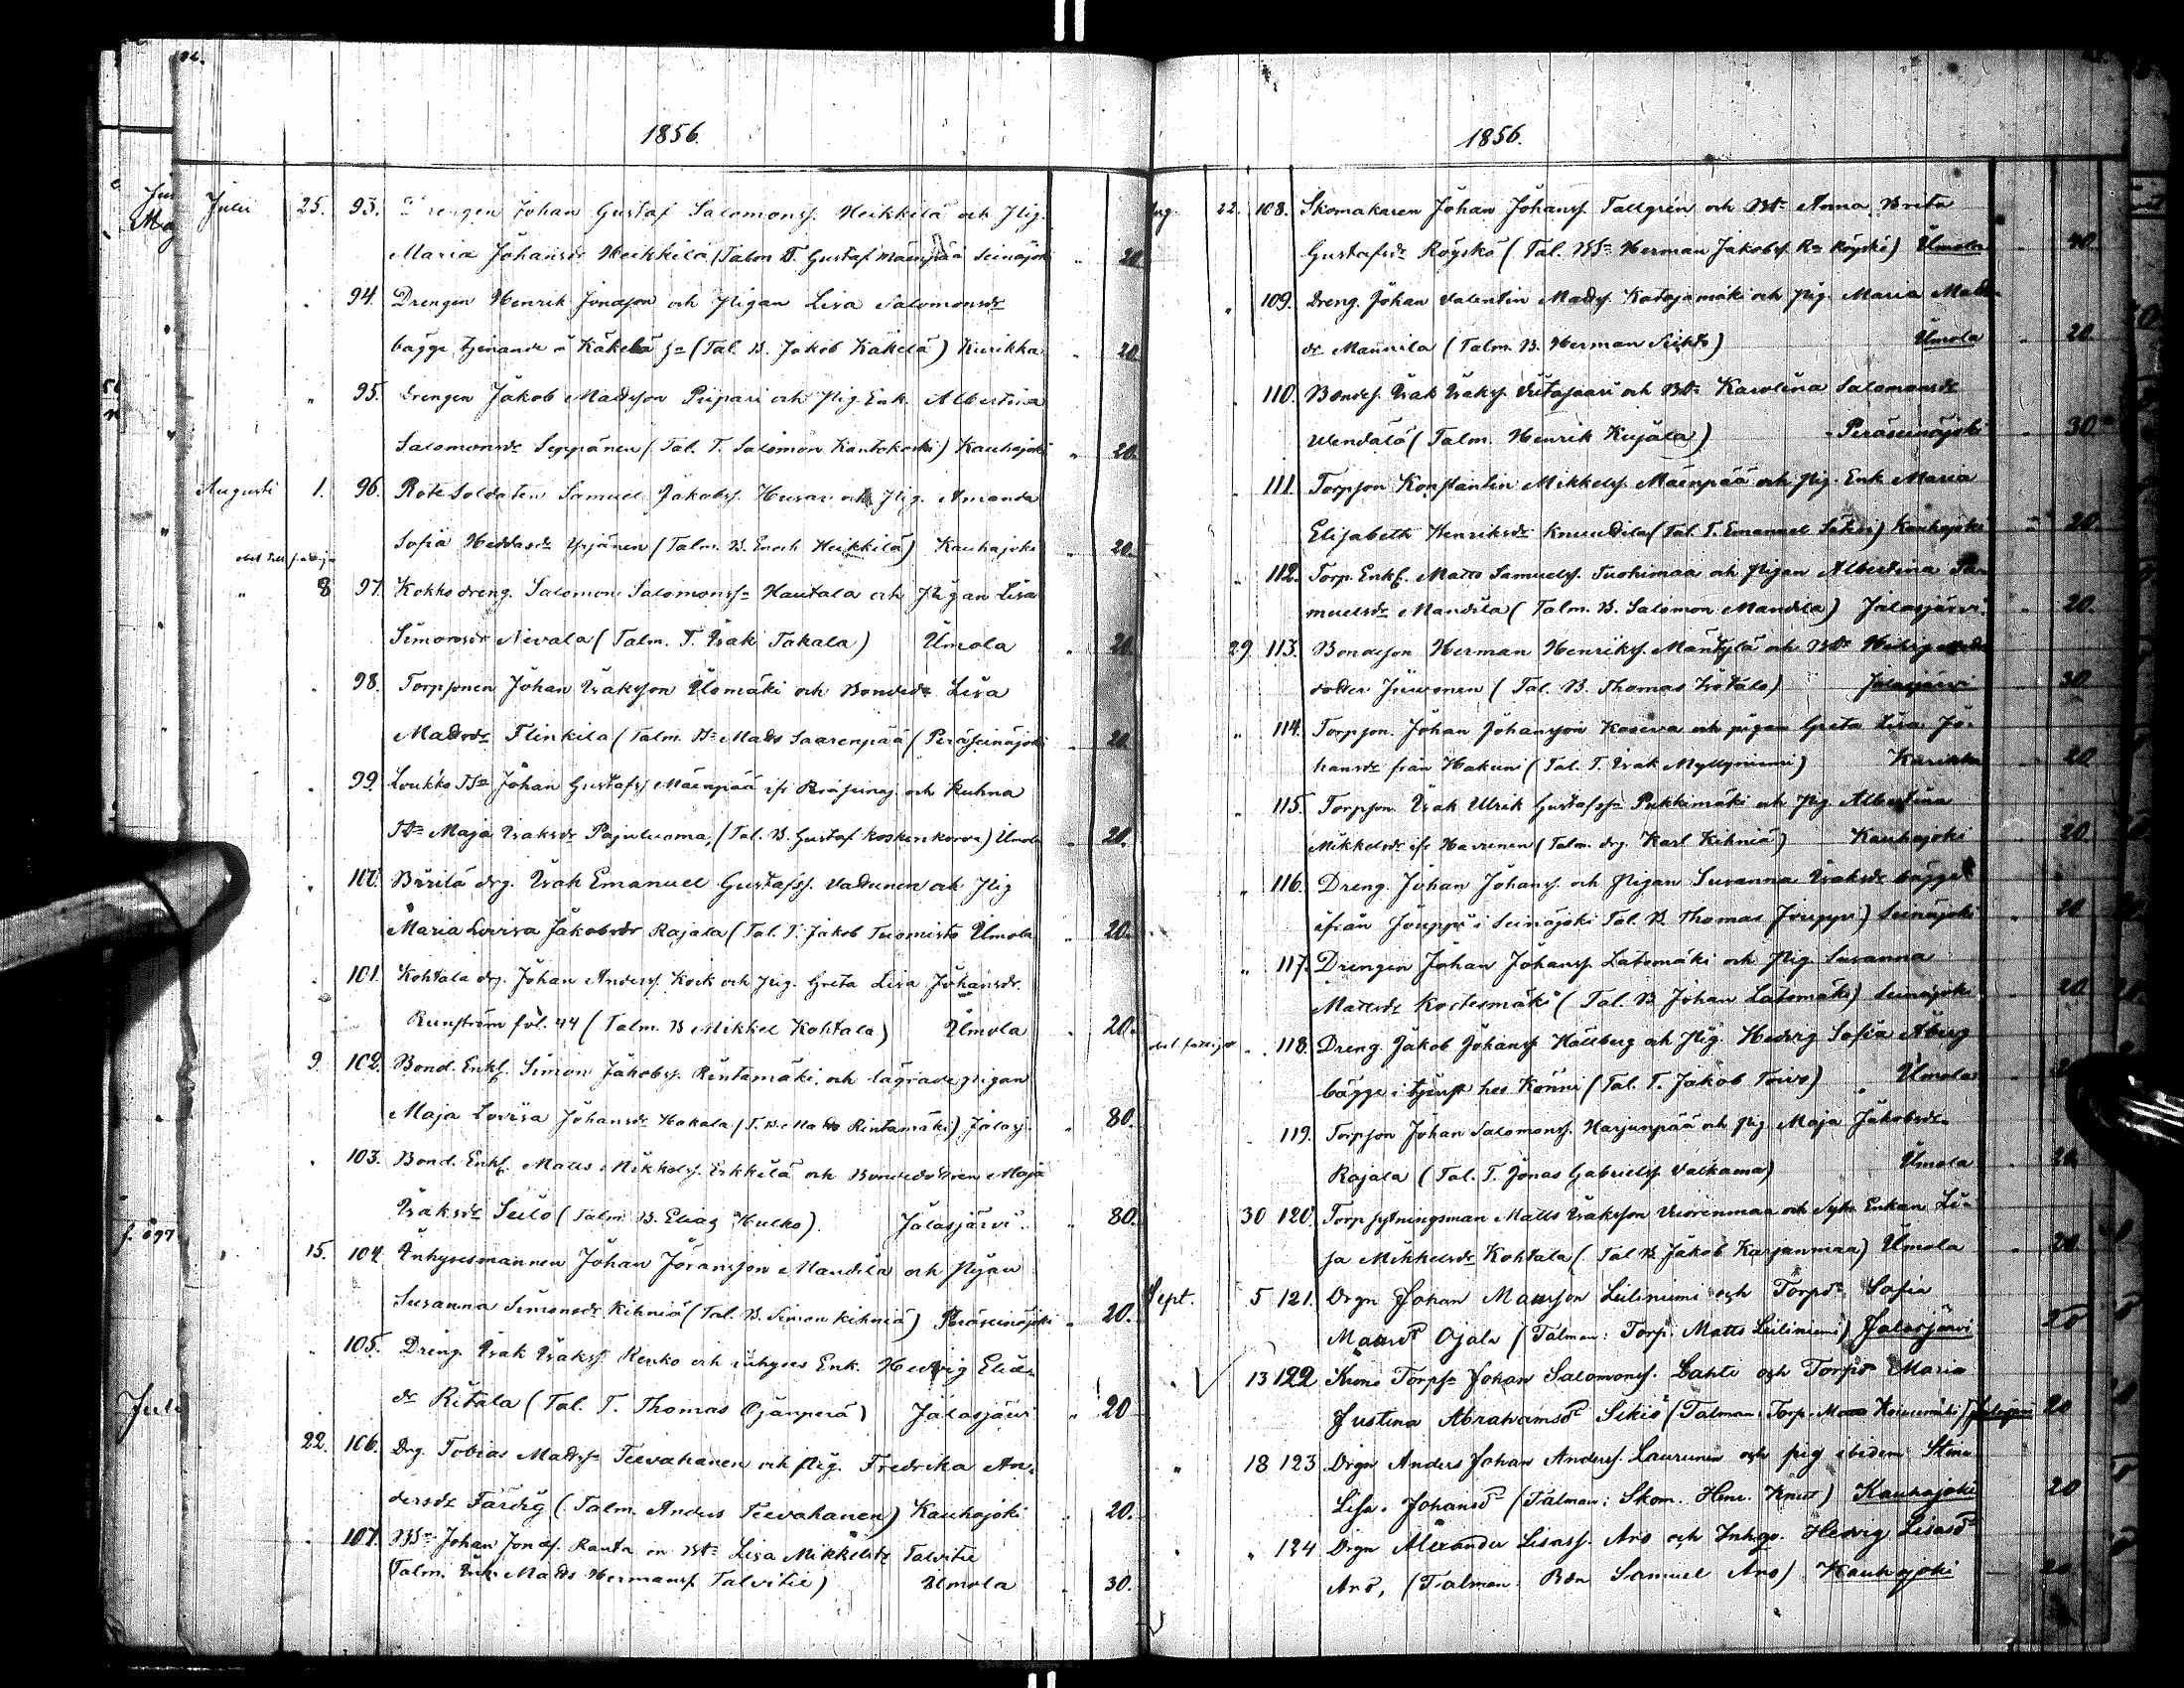 1856.
Juli 25. 93. Drengen Johan Gustaf Salomonss. Heikkilä och Pig.
Maria Johansdr Heikkilä (Talm B. Gustaf Mäenpää Seinäjoki " 20
" 94. Drengen Henrik Jonasson och Pigan Lisa Salomonsdr
bägge tjenande å Käkelä (Tal. B. Jakob Käkelä) Kurikka " 20
" 95. Drengen Jakob Mattsson Piipari och Pig. Enk. Albertina
Salomonsdr Seppänen (Tal. T. Salomon Kantokoski) Kauhajoki " 20.
Augusti 1. 96. Rote Soldaten Samuel Jakobss. Husar och Pig. Amanda
Sofia Heddasdr Yrjänen (Talm. B. Enoch Heikkilä) Kauhajoki " 20.
" 8 97. Kokko dreng. Salomon Salomonss. Hautala och Pigan Lisa
Simonsdr Nevala (Talm. T. Isak Takala) Ilmola " 20.
" 98. Torpsonen Johan Isaksson Ulomäki och Bondedr Lisa
Mattsdr Flinkila (Talm. Bn Matts Saarenpää (Peräseinäjoki " 20
" 99. Loukko Bn Johan Gustafss Mäenpää och Ruhna
Maja Isaksdr Pajuluoma, (Tal. B. Gustaf Koskenkorva) Ilmola " 20.
" 100. drg. Isak Emanuel Gustafss. och Pig
Maria Lovisa Jakobsdr Rajala (Tal. T. Jakob Tuomisto Ilmola " 20.
" 101. Kohtala drg. Johan Anderss. Kock och Pig. Greta Lisa Johansdr.
Runström fol. 44 (Talm. B Mikkel Kohtala) Ilmola " 20.
9. 102. Bond. Enkl. Simon Jakobss. Rintamäki och lägrade pigan
Maja Lovisa Johansdr Hakala (T. B. Matts Rintamäki) Jalasj. " 80.
" 103. Bond. Enkl. Matts Mikkelss. Erkkilä och Bondedottren Maja
Isaksdr (Talm. B. Elias Hulko). Jalasjärvi. " 80.
15. 104. Inhysesmannen Johan Jöransson Mandila och Pigan
Susanna Simonsdr Kihniä (Tal. B. Simon Kihniä) Peräseinäjoki " 20.
" 105. Dreng. Isak Isakss. Renko och inhyses Enk. Hedvig Elia-
dr Ritala (Tal. T. Thomas Ojanperä) Jalasjärvi " 20
22. 106. Drg. Tobias Mattss. Teevahanen och Pig. Fredrika An-
dersdr Färdig (Talm. Anders Teevahanen) Kauhajoki " 20.
" 107. Bs. Johan Jonass. Ranta och Bdr Lisa Mikkelsdr Talvitie
(Talm. Matts Hermanss Talvitie) Ilmola " 30.
1856.
Aug. 22. 108. Skomakaren Johan Johanss. Tallgrén och Bdr Anna Brita
Gustafsdr Röyskö (Tal. Bs. Herman Jakobss. Röyskö) Ilmola " 40.
" 109. Dreng. Johan Valentin Mattss. Katajamäki och Pig. Maria Matts-
dr Mannila (Talm. B. Herman) Ilmola " 20.
" 110. Bondes. Isak Isakss. Viitasaari och Bdr Karolina Salomonsdr
(Talm. Henrik Kujala) Peräseinäjoki " 30
" 111. Torpson Konstantin Mikkelss. Mäenpää och Pig. Enk Maria
Elisabeth Henriksdr Knuuttila (Tal. T. Emanuel) Kauhajoki " 20.
" 112. Torp. Enkl. Matts Samuelss. Tuohimaa och Pigan Albertina Sa-
muelsdr Mandila (Talm. B. Salomon Mandila) Jalasjärvi " 20.
29 113. Bondeson Herman Henrikss. Mäntylä och Bdr Hedvig
dotter Juvonen (Tal. B. Thomas) Jalasjärvi " 30
" 114. Torpson. Johan Johansson Koseva och pigan Greta Lisa Jo-
hansdr från Hakuni (Tal. T. Isak Myllyniemi) Kurikka " 20
" 115. Torpson Isak Ulrik Gustafss. Pukkimäki och Pig Albertina
Mikkelsdr ifr Havunen (Talm. drg. Karl Kihniä) Kauhajoki " 20.
" 116. Dreng. Johan Johanss. och Pigan Susanna Isaksdr bägge
ifrån Jouppi i Seinäjoki Tal. B. Thomas Jouppi) Seinäjoki " 20
" 117. Drengen Johan Johanss. Latomäki och Pig Susanna
Mattsdr Kortesmäki (Tal. B Johan Latomäki) Seinäjoki " 20
" 118. Dreng. Jakob Johanss Hällberg och Pig. Hedvig Sofia Åberg
bägge i tjenst hos Könni (Tal. T. Jakob Toivo) Ilmola
119. Torpson Johan Salomonss. Harjunpää och Pig Maja Jakobsdr
Rajala (Tal. T. Jonas Gabrielss. Valkama) Ilmola 20
30 120. Torp sytningsman Matts Isaksson Vuorenmaa och Sytn. Enkan Li-
sa Mikkelsdr Kohtala (Tal B. Jakob Karjanmaa) Ilmola " 20
Sept. 5 121. Drgn Johan Mattsson Luliniemi och Torpdr Sofia
Mattsdr Ojala (Talman: Torp. Matts Luliniemi) Jalasjärvi 20
" 13 122 Krono Torps. Johan Salomonss. Lahti och Torpdr Maria
Justina Abrahamsdr Sikiö (Talman: Torp. Matts) Jalasjärvi 20
" 18 123 Drgn Anders Johan Anderss. Laurunen och pig ibidem Stina
Lisa Johansdr (Talman: Skom. Henr. Knut) Kauhajoki 20
" " 124 Drgn Alexander Lisass. Aro och Inhys. Hedvig Lisasdr
Aro, (Talman: Bdn Samuel Aro) Kauhajoki 20